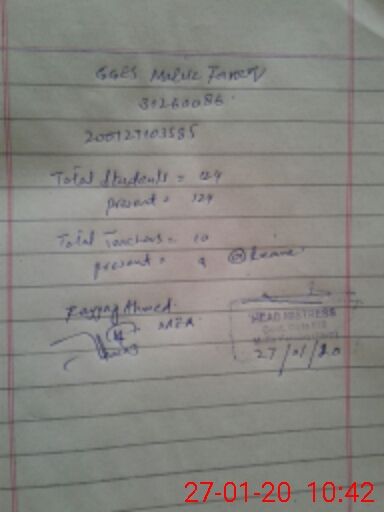 GGES Malik
31260086
200127103585
Total Students = 124
present = 124
Total Teachers = 10
present = 9
Ahmed
HEAD MISTRESS
27/01/20
27-01-20 10:42